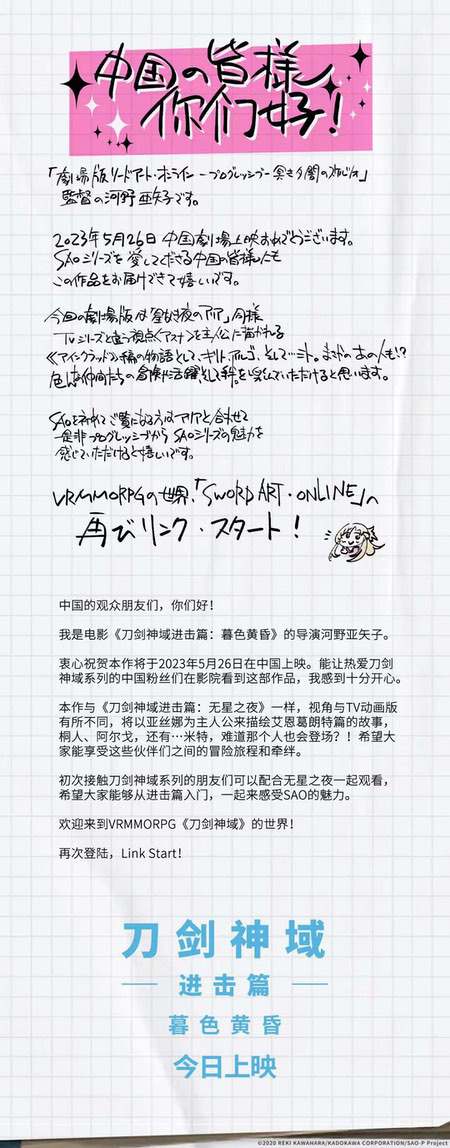 中国の皆様
你们好！
「劇場版ソードアート・オンライン -プログレッシブ- 冥き夕闇のスケルツォ」
監督の河野亜矢子です。
2023年5月26日 中国劇場上映おめでとうございます。
SAOシリーズを愛してくださる中国の皆様にも
この作品をお届けできて嬉しいです。
今回の劇場版は「星なき夜のアリア」同様
TVシリーズと違う視点〈アスナ〉を主人公に描かれる
《アインクラッド》編の物語として、キリト、アルゴ、そして…ミト。まさかのあの人も!?
色んな仲間たちの冒険に活躍、そして絆を楽しんでいただけると思います。
SAOを初めてご覧になる方はアリアと合わせて
是非プログレッシブからSAOシリーズの魅力を
感じていただけると嬉しいです。
VRMMORPGの世界、「SWORD ART・ONLINE」へ
再びリンク・スタート！
中国的观众朋友们，你们好！
我是电影《刀剑神域进击篇：暮色黄昏》的导演河野亚矢子。
衷心祝贺本作将于2023年5月26日在中国上映。能让热爱刀剑
神域系列的中国粉丝们在影院看到这部作品，我感到十分开心。
本作与《刀剑神域进击篇：无星之夜》一样，视角与TV动画版
有所不同，将以亚丝娜为主人公来描绘艾恩葛朗特篇的故事，
桐人、阿尔戈，还有…米特，难道那个人也会登场？！希望大
家能享受这些伙伴们之间的冒险旅程和牵绊。
初次接触刀剑神域系列的朋友们可以配合无星之夜一起观看，
希望大家能够从进击篇入门，一起来感受SAO的魅力。
欢迎来到VRMMORPG《刀剑神域》的世界！
再次登陆，Link Start！
刀剑神域
进击篇
暮色黄昏
今日上映
©2020 REKI KAWAHARA/KADOKAWA CORPORATION/SAO-P Project